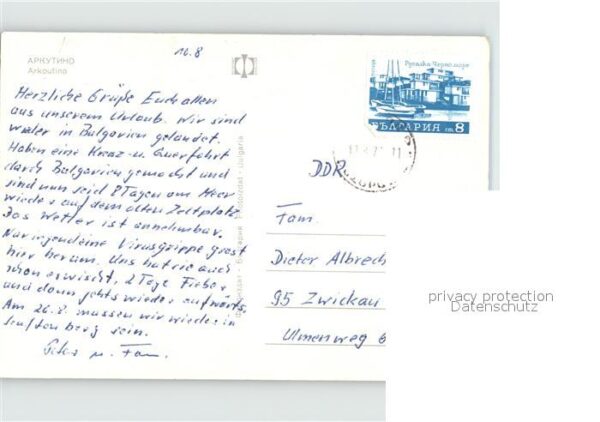 16.8
АРКУТИНО
Arkoutino
Herzliche Grüße Euch allen
aus unserem Urlaub. Wir sind
wieder in Bulgarien gelandet.
Haben eine Kreuz-u. Querfahrt
durch Bulgarien gemacht und
sind nun seid 8 Tagen am Meer
wieder auf dem alten Zeltplatz.
Das Wetter ist annehmbar.
Nur irgendeine Virusgrippe grast
hier herum. Uns hat sie auch
schon erwischt, 2 Tage Fieber
und dann gehts wieder aufwärts.
Am 26.8. müssen wir wieder in
sein.
u. Fam.
България
Bulgaria
Русалка-Черно море
БЪЛГАРИЯ ст. 8
DDR
Fam.
Dieter Albrech
95 Zwickau
Ulmenweg 6
privacy protection
Datenschutz